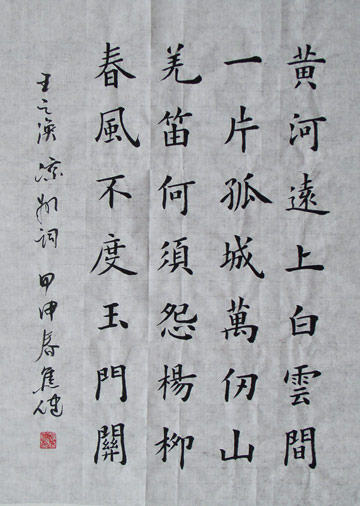 黄河遠上白雲間
一片孤城萬仞山
羌笛何須怨楊柳
春風不度玉門關
王之渙涼州詞 甲申春 焦健